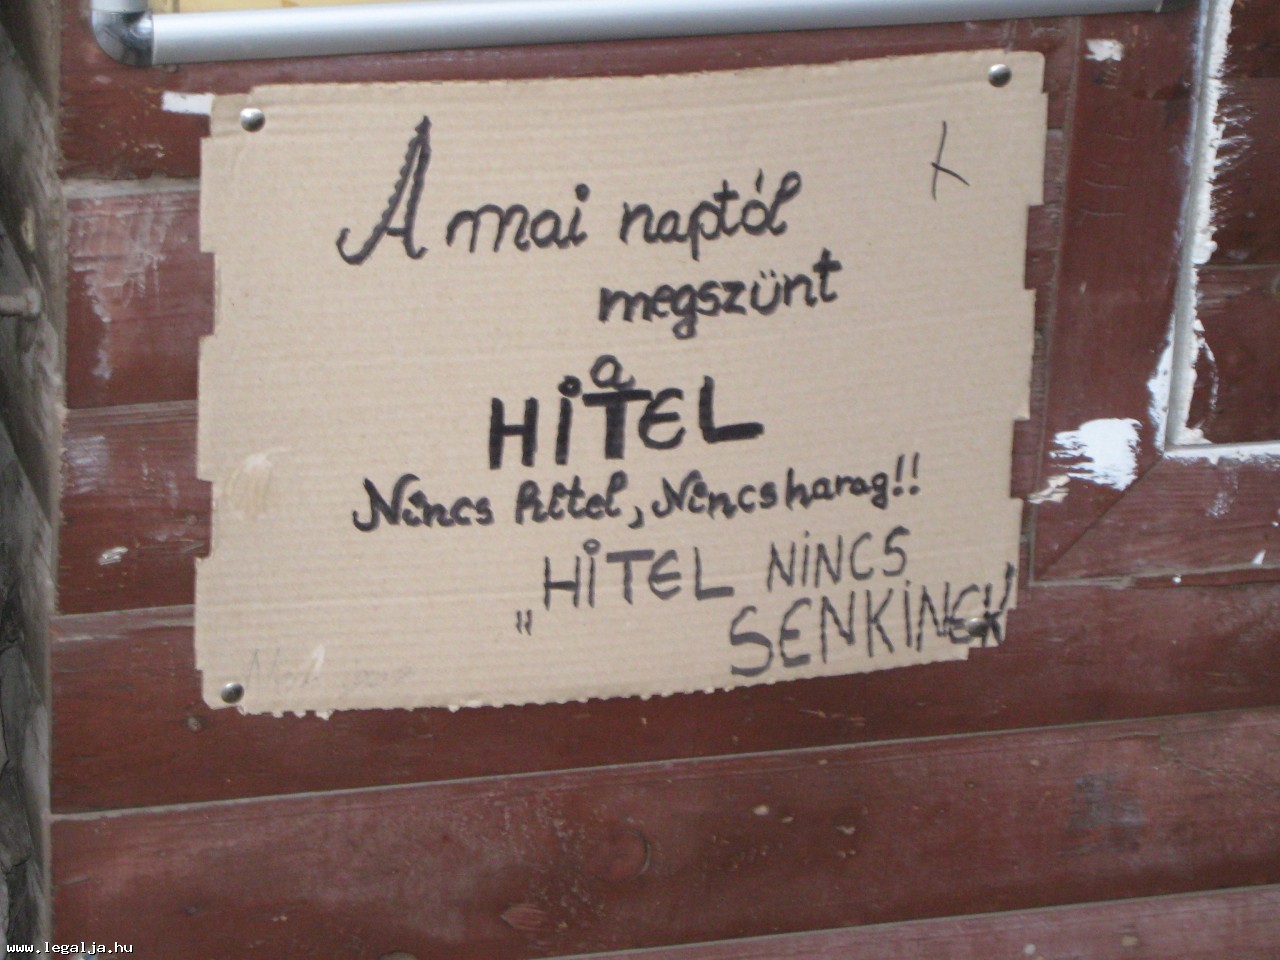 A mai naptól
megszünt
a
HiTEL
Nincs hitel, Nincs harag!!
HiTEL NiNCS
„ SENKiNEK
www.legalja.hu